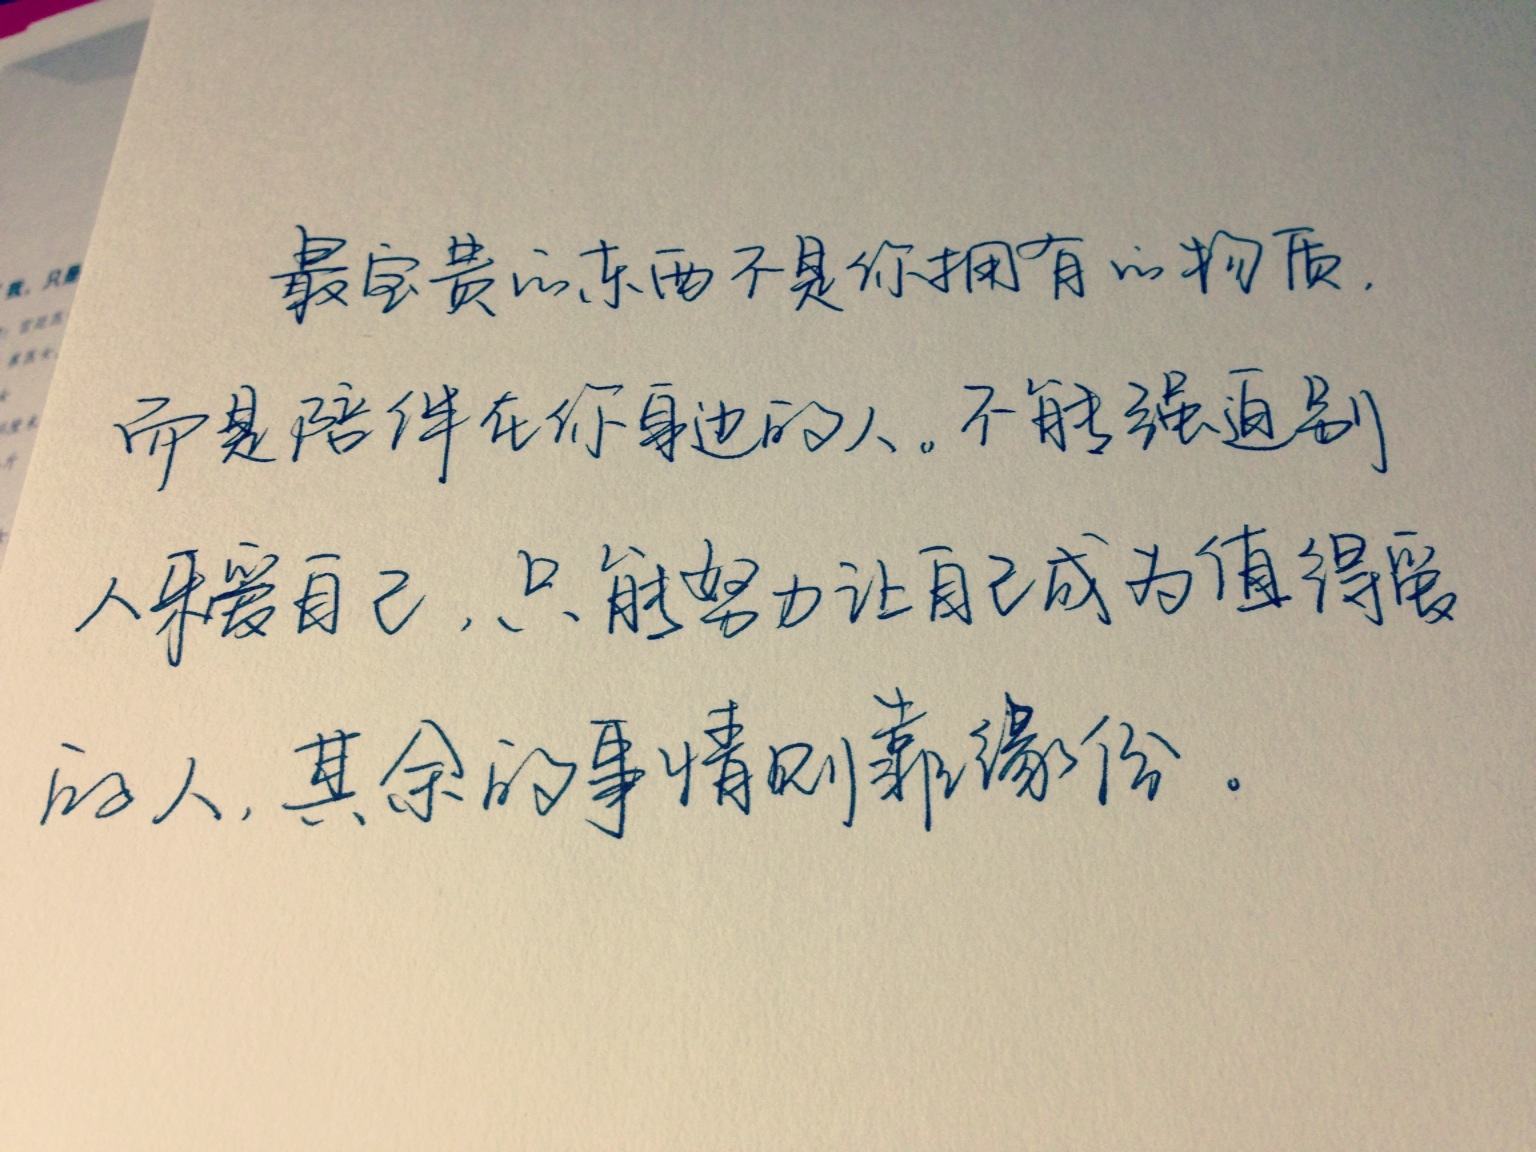 最宝贵的东西不是你拥有的物质，
而是陪伴在你身边的人。不能强迫别
人来爱自己，只能努力让自己成为值得爱
的人，其余的事情则靠缘份。
我，只是